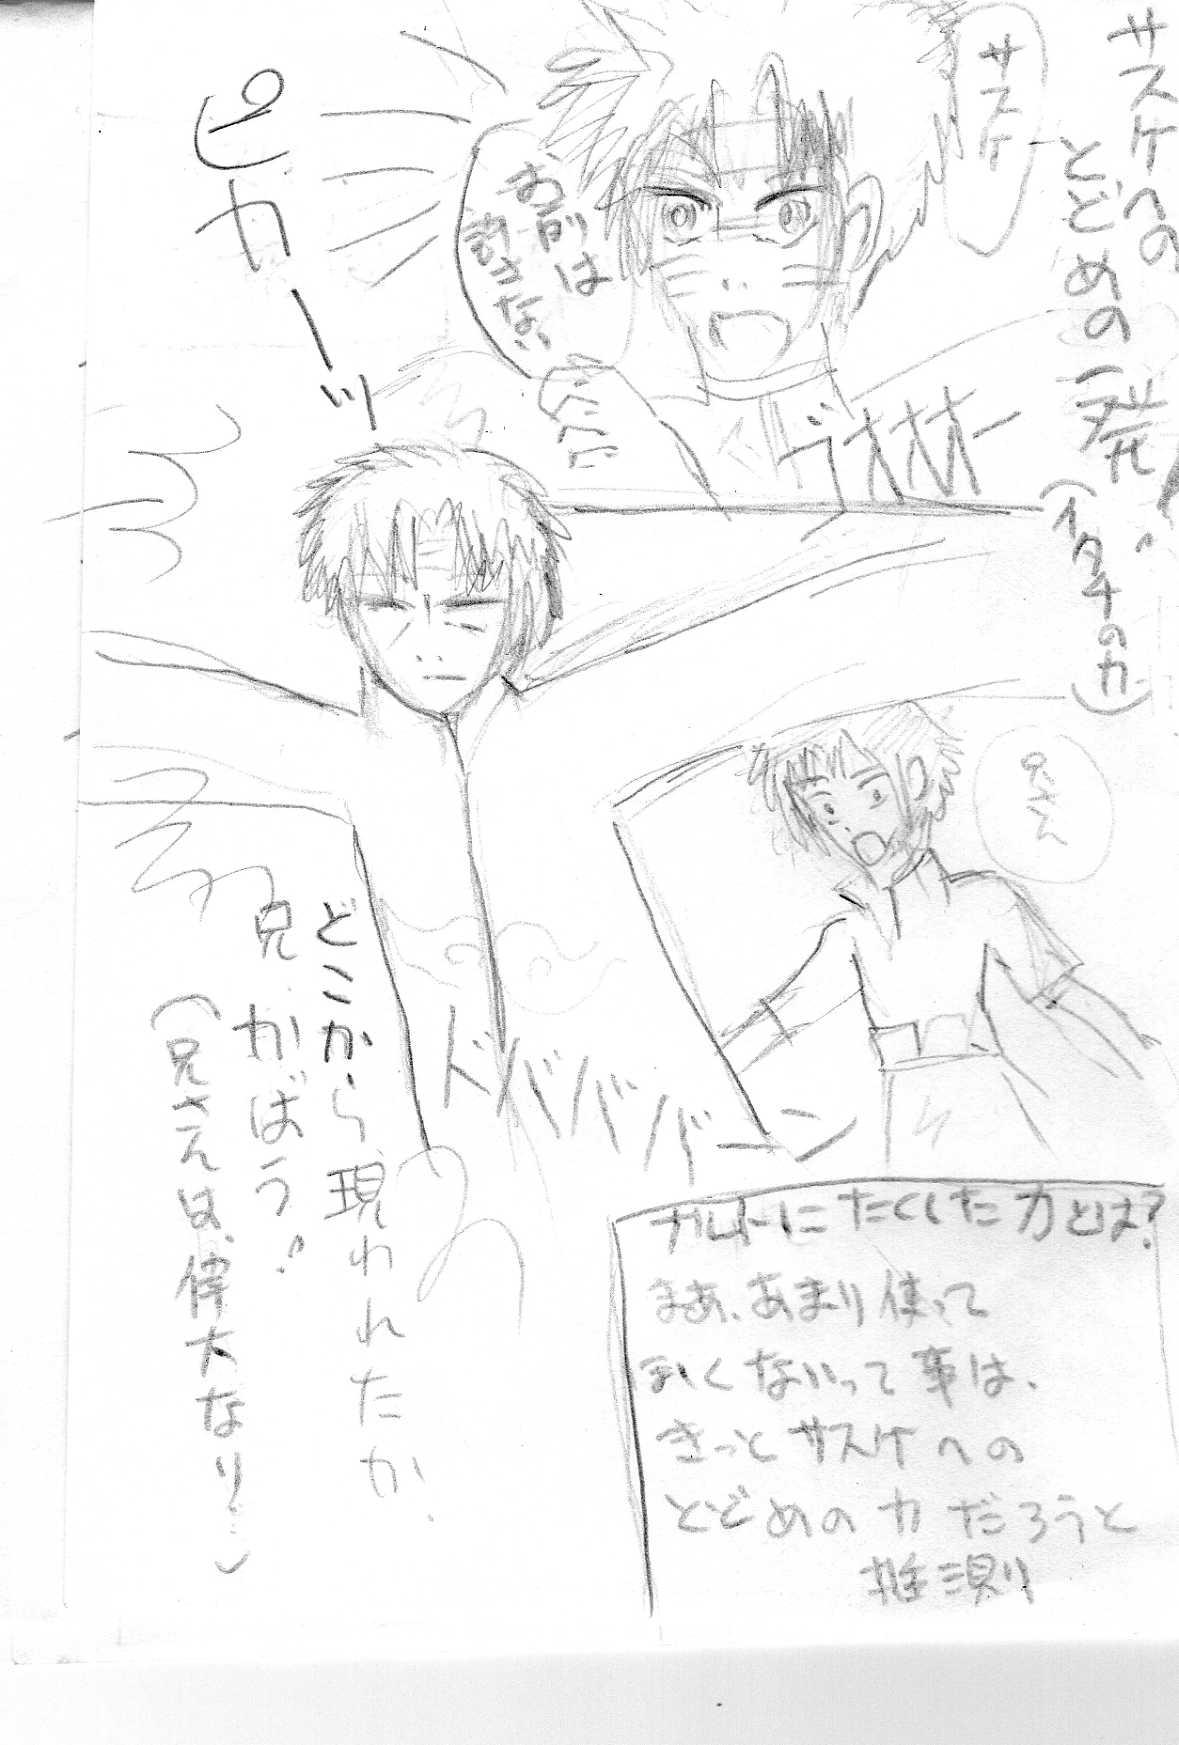 サスケへの
とどめの一発!!
(イタチの力)
サスケ
お前は
許さない
ヴオオオオー
ピカーッ
兄さん
ドババババーン
どこから現われたか
兄、かばう!!
(兄さんは、偉大なり…)
ナルトにたくした力とは?
まあ、あまり使って
ほしくないって事は、
きっとサスケへの
とどめの力だろうと
推測